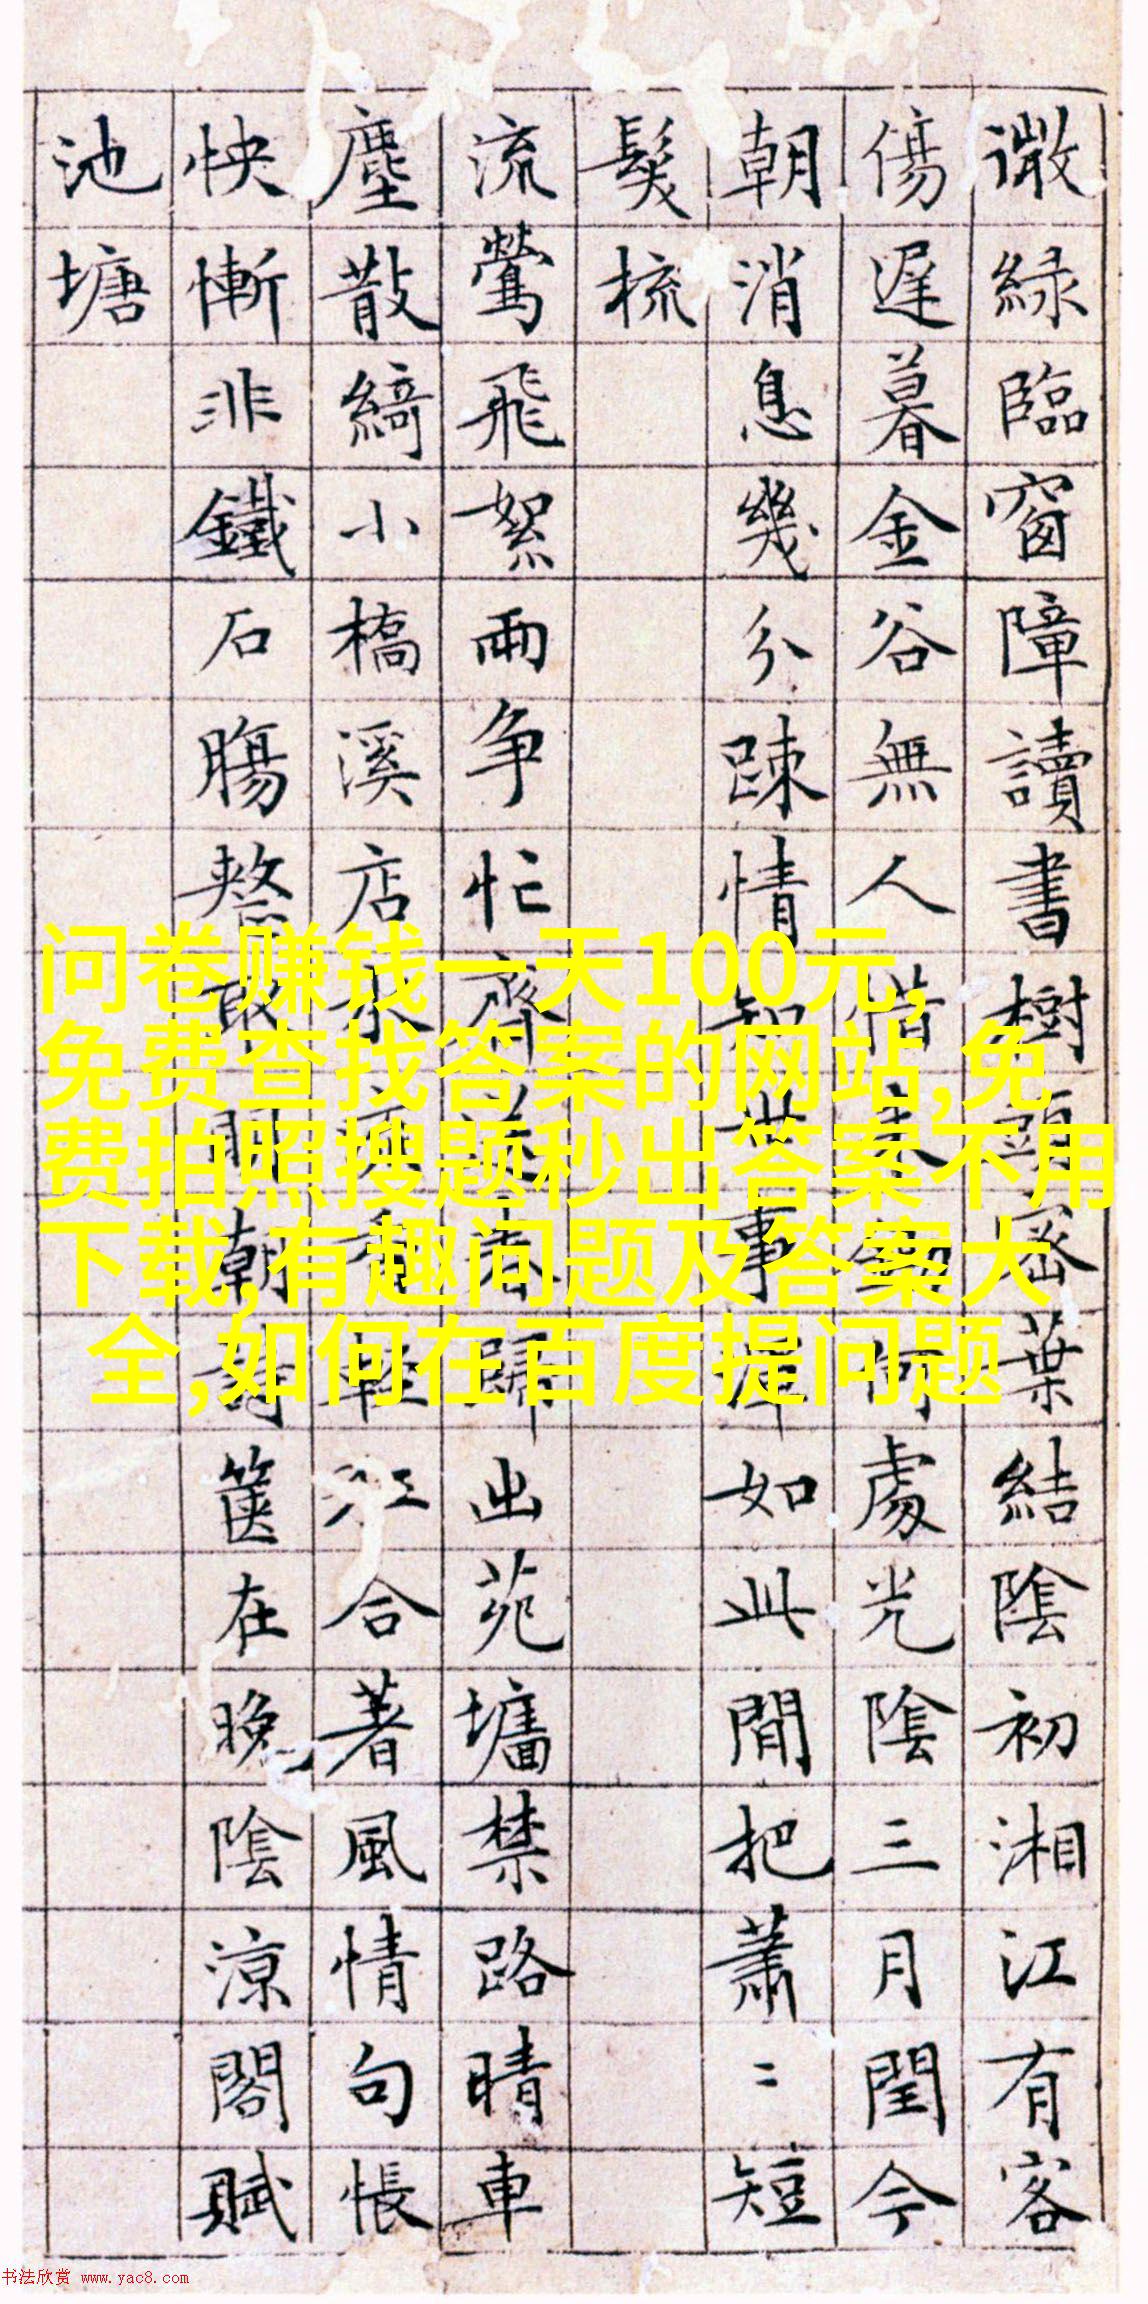 微綠臨窗障讀書樹頭密葉結陰初湘江有客
傷遲暮金谷無人惜何處光陰三月閏今
朝消息幾分踈情知世事如此閒把蕭〻短
髮梳
流鶯飛絮兩争忙齊送春歸出苑墻禁路晴車
塵散綺小橋溪店水香輕江合著風情句悵
怏慚非鐵石腸敢朝詩篋在晚陰涼閣賦
池塘
问卷赚钱一天100元,
免费查找答案的网站,免
费拍照搜题秒出答案不用
下载,有趣问题及答案大
全,如何在百度提问题
书法欣赏 www.yac8.com